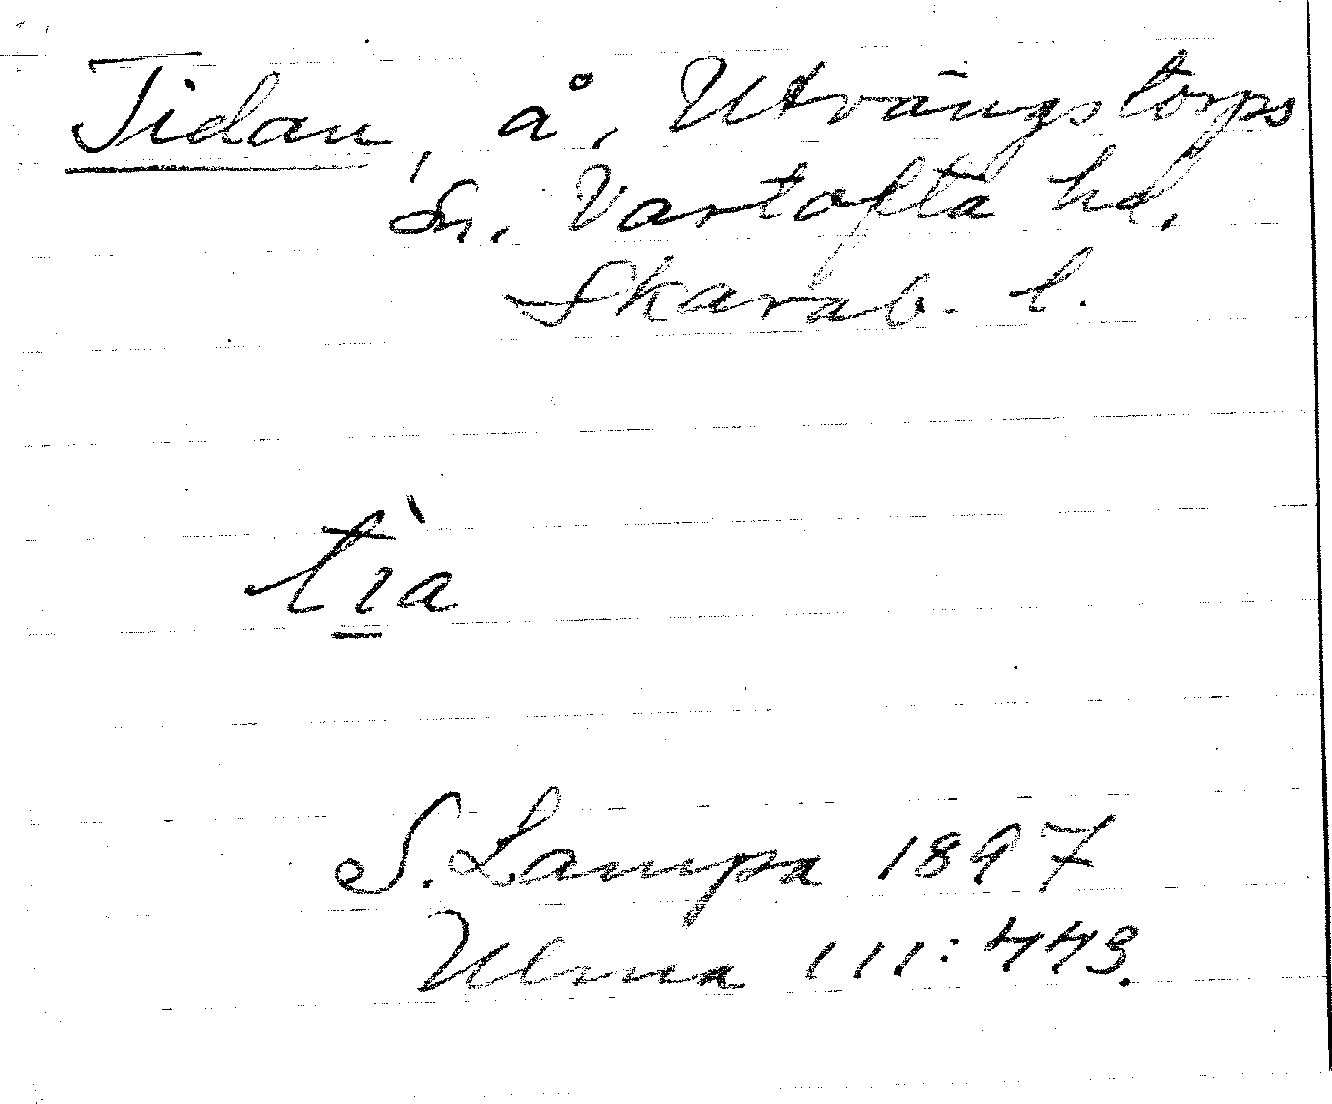 Tidan, å, Utvängstorps
sn. Vartofta hd.
Skarab. l.
tìa
S. Lampa 1897
Ulma 111:443.